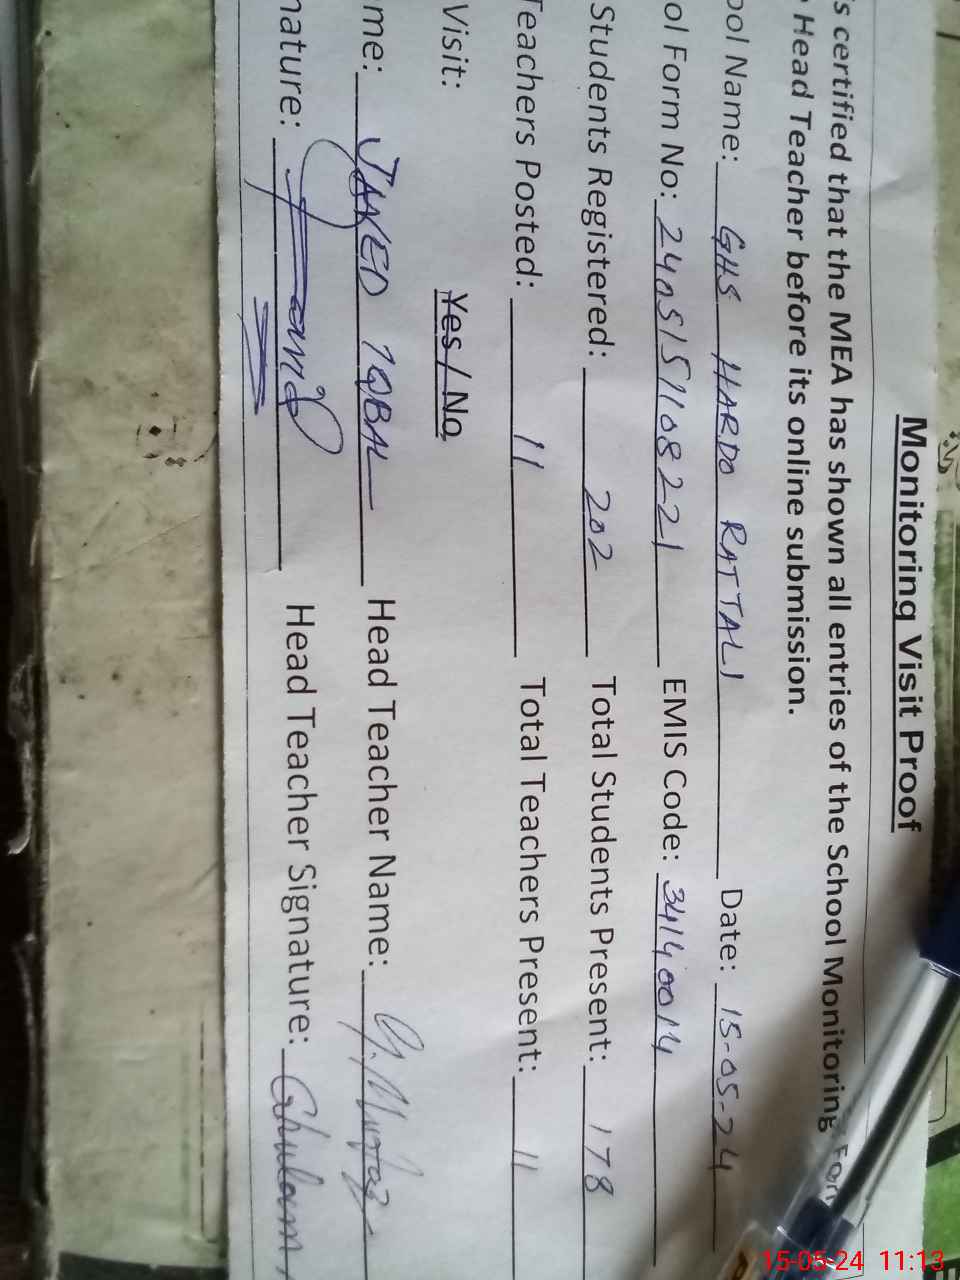 Monitoring Visit Proof
's certified that the MEA has shown all entries of the School Monitoring Form
Head Teacher before its online submission.
ool Name: GHS HARDO RATTALI Date: 15-05-24
ol Form No: 2405151108221 EMIS Code: 34140014
Students Registered: 202 Total Students Present: 178
Teachers Posted: 11 Total Teachers Present: 11
Visit: Yes / No
me: JAVED IQBAL Head Teacher Name:
nature: Head Teacher Signature: Ghulam
15-05-24 11:13